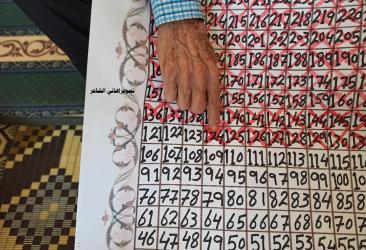 215 216 217 218 219 220
201 202 203 204 205
186 187 188 189 190
171 172 173 174 175
156 157 158 159 160
تصوير/هاني الشاعر
136 137 140 141 142 143 144 145
121 122 123 124 125 126 127 128 129 130
106 107 108 109 110 111 112 113 114
91 92 93 94 95 96 97 98 99 100
76 77 78 79 80 81 82 83 84 85
61 62 63 64 65 66 67 68 69 70
46 47 48 49 50 51 52 53 54 55